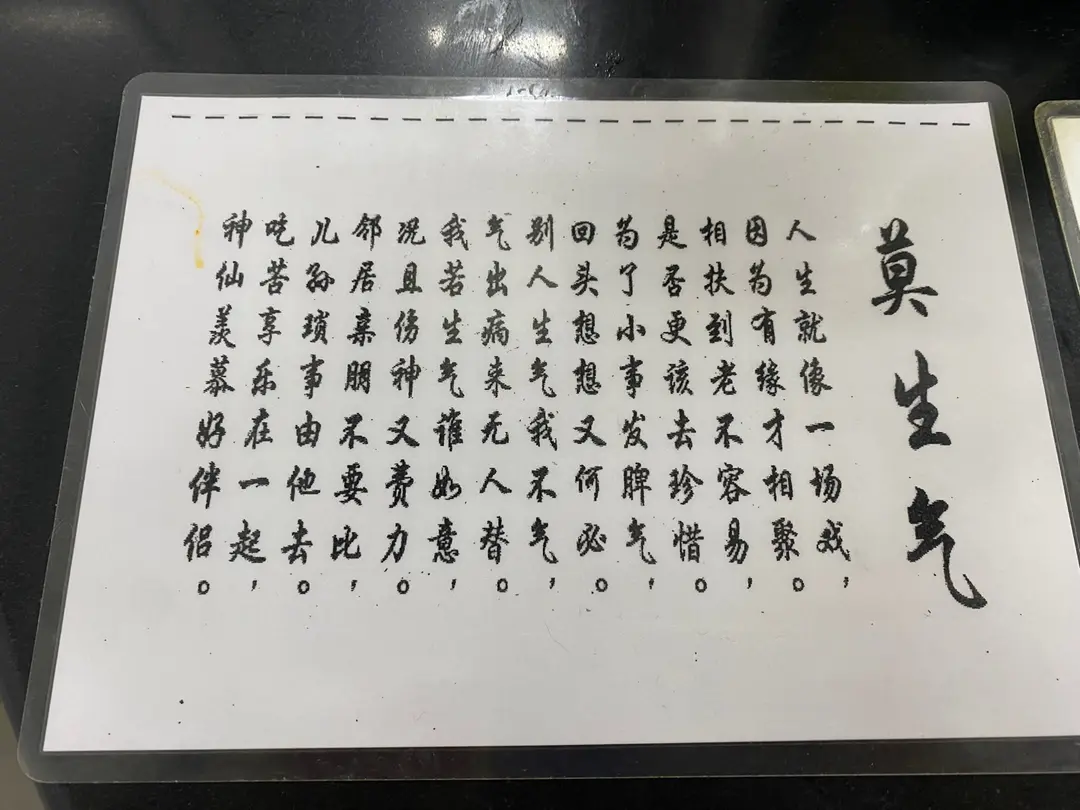 莫生气
人生就像一场戏，
因为有缘才相聚。
相扶到老不容易，
是否更该去珍惜。
为了小事发脾气，
回头想想又何必。
别人生气我不气，
气出病来无人替。
我若生气谁如意，
况且伤神又费力。
邻居亲朋不要比，
儿孙琐事由他去。
吃苦享乐在一起，
神仙羡慕好伴侣。